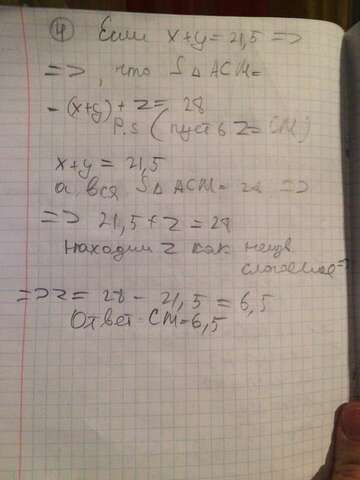 4 Если x+y=21,5 =>
=>, что S△ACM=
-(x+y)+z=28
P.S (пусть z=CM)
x+y=21,5
а вся S△ACM=28 =>
=> 21,5+z=28
находим z как неизв
слагаемое=>
=>z=28-21,5=6,5
Ответ CM=6,5